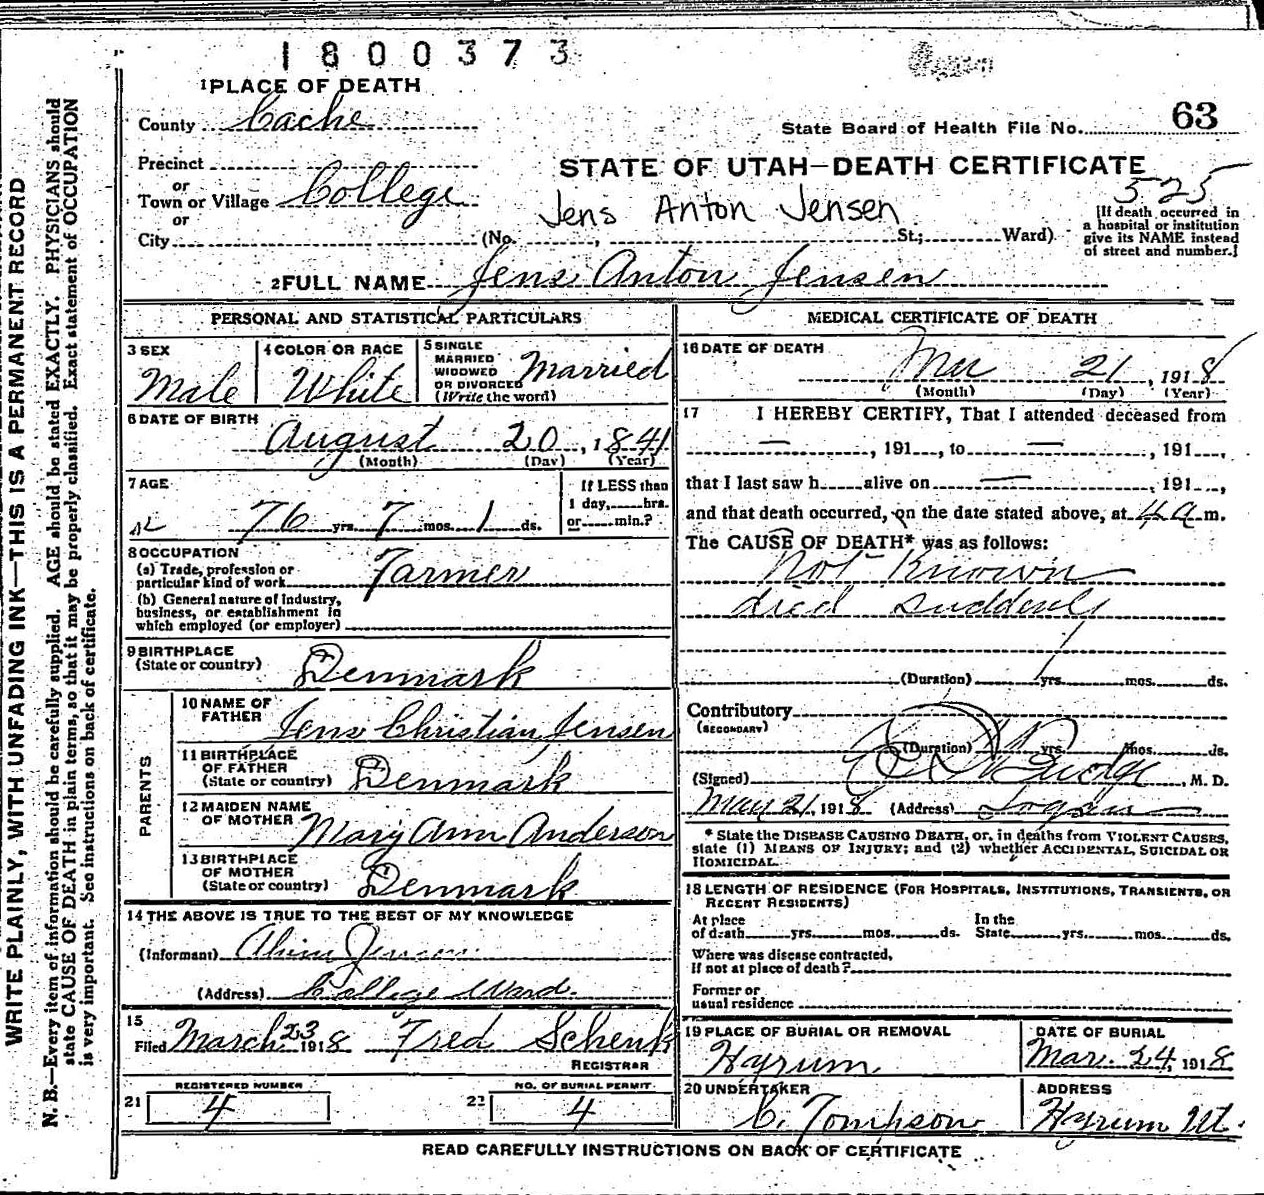 1800373
1 PLACE OF DEATH
County Cache
63
State Board of Health File No.
Precinct
or
Town or Village College
or
City
STATE OF UTAH—DEATH CERTIFICATE
525
Jens Anton Jensen
(No. , St.; Ward)
[If death occurred in
a hospital or institution
give its NAME instead
of street and number.]
2 FULL NAME Jens Anton Jensen
PERSONAL AND STATISTICAL PARTICULARS
3 SEX
Male
4 COLOR OR RACE
White
5 SINGLE
MARRIED
WIDOWED
OR DIVORCED
(Write the word)
Married
6 DATE OF BIRTH
August 20, 1841
(Month) (Day) (Year)
7 AGE
76 yrs. 7 mos. 1 ds.
If LESS than
1 day, hrs.
or min.?
8 OCCUPATION
(a) Trade, profession or
particular kind of work Farmer
(b) General nature of industry,
business, or establishment in
which employed (or employer)
9 BIRTHPLACE
(State or country) Denmark
PARENTS
10 NAME OF
FATHER Jens Christian Jensen
11 BIRTHPLACE
OF FATHER
(State or country) Denmark
12 MAIDEN NAME
OF MOTHER Mary Ann Anderson
13 BIRTHPLACE
OF MOTHER
(State or country) Denmark
14 THE ABOVE IS TRUE TO THE BEST OF MY KNOWLEDGE
(Informant) Jensen
(Address) College Ward.
15
Filed March 23 1918 Fred Schenk
REGISTRAR
REGISTERED NUMBER
21 4
NO. OF BURIAL PERMIT
22 4
MEDICAL CERTIFICATE OF DEATH
16 DATE OF DEATH
Mar 21, 1918
(Month) (Day) (Year)
17 I HEREBY CERTIFY, That I attended deceased from
— , 191 , to — , 191 ,
that I last saw h alive on — , 191 ,
and that death occurred, on the date stated above, at 4 a m.
The CAUSE OF DEATH* was as follows:
Not Known
died suddenly
(Duration) yrs. mos. ds.
Contributory
(SECONDARY)
(Duration) yrs. mos. ds.
(Signed) Budge, M. D.
Mar 21, 1918 (Address) Logan
* State the DISEASE CAUSING DEATH, or, in deaths from VIOLENT CAUSES,
state (1) MEANS OF INJURY; and (2) whether ACCIDENTAL, SUICIDAL OR
HOMICIDAL.
18 LENGTH OF RESIDENCE (FOR HOSPITALS, INSTITUTIONS, TRANSIENTS, OR
RECENT RESIDENTS)
At place
of death yrs. mos. ds.
In the
State yrs. mos. ds.
Where was disease contracted,
If not at place of death?
Former or
usual residence
19 PLACE OF BURIAL OR REMOVAL
Hyrum
DATE OF BURIAL
Mar. 24, 1918
20 UNDERTAKER
C. Tompson
ADDRESS
Hyrum Ut.
READ CAREFULLY INSTRUCTIONS ON BACK OF CERTIFICATE
WRITE PLAINLY, WITH UNFADING INK—THIS IS A PERMANENT RECORD
N. B.—Every item of information should be carefully supplied. AGE should be stated EXACTLY. PHYSICIANS should
state CAUSE OF DEATH in plain terms, so that it may be properly classified. Exact statement of OCCUPATION
is very important. See instructions on back of certificate.